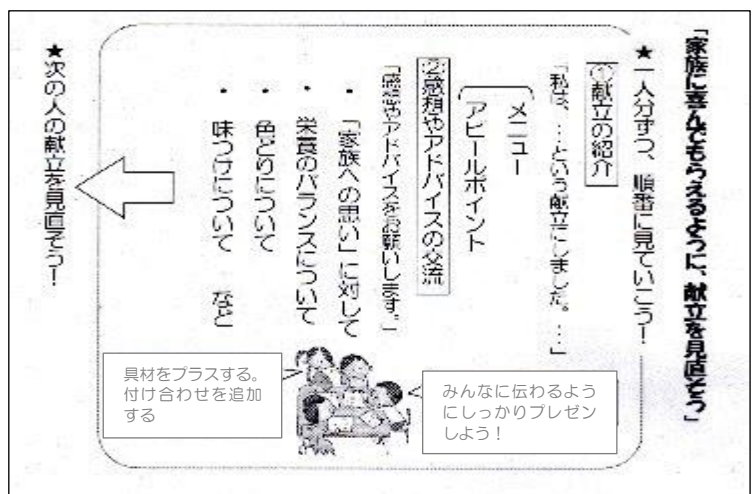 「家族に喜んでもらえるように、献立を見直そう」
★一人分ずつ、順番に見ていこう！
①献立の紹介
「私は、…という献立にしました。…」
メニュー
アピールポイント
②感想やアドバイスの交流
「感想やアドバイスをお願いします。」
・「家族への思い」に対して
・栄養のバランスについて
・色どりについて
・味つけについて　など
具材をプラスする。
付け合わせを追加
する
みんなに伝わるよう
にしっかりプレゼン
しよう！
★次の人の献立を見直そう！